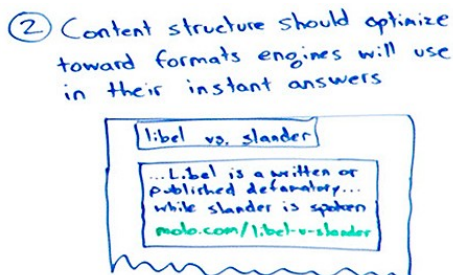 ② Content structure should optimize
toward formats engines will use
in their instant answers
libel vs. slander
...Libel is a written or
published defamatory...
while slander is spoken
molo.com/libel-v-slander